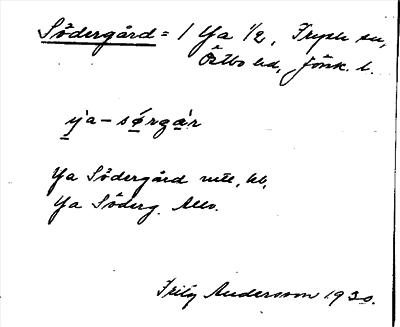 Södergård = 1 Ya 1/2, Fryele sn,
Östbo hd, Jönk. l.
ya - sörgár
Ya Södergård mtl, kb,
Ya Söderg. Allo.
Fritz Andersson 1930.